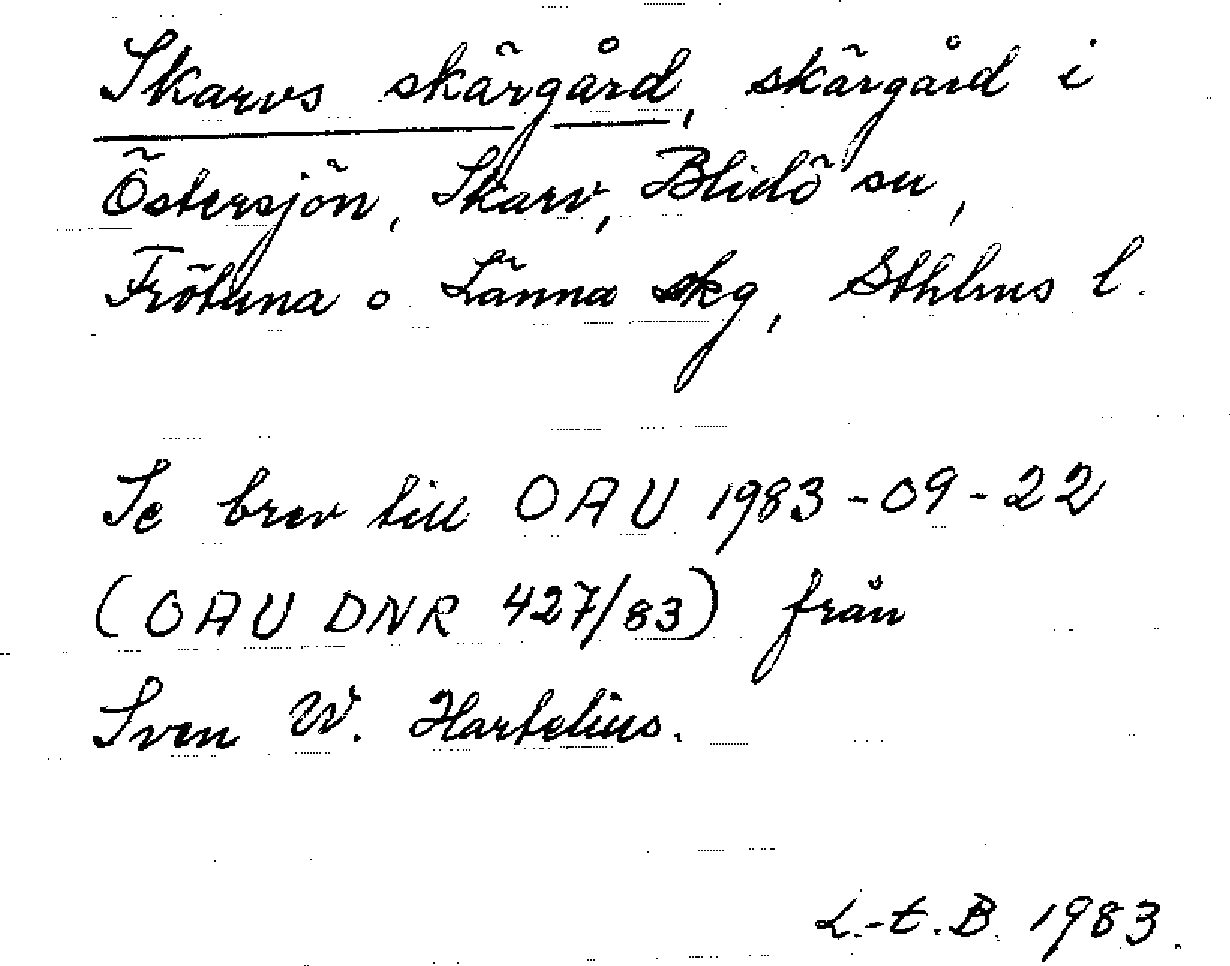 Skarvs skärgård, skärgård i
Östersjön, Skarv, Blidö sn,
Frötuna o Länna skg, Sthlms l.
Se brev till OAU 1983-09-22
(OAU DNR 427/83) från
Sven W. Hartelius.
L.-E.B. 1983.